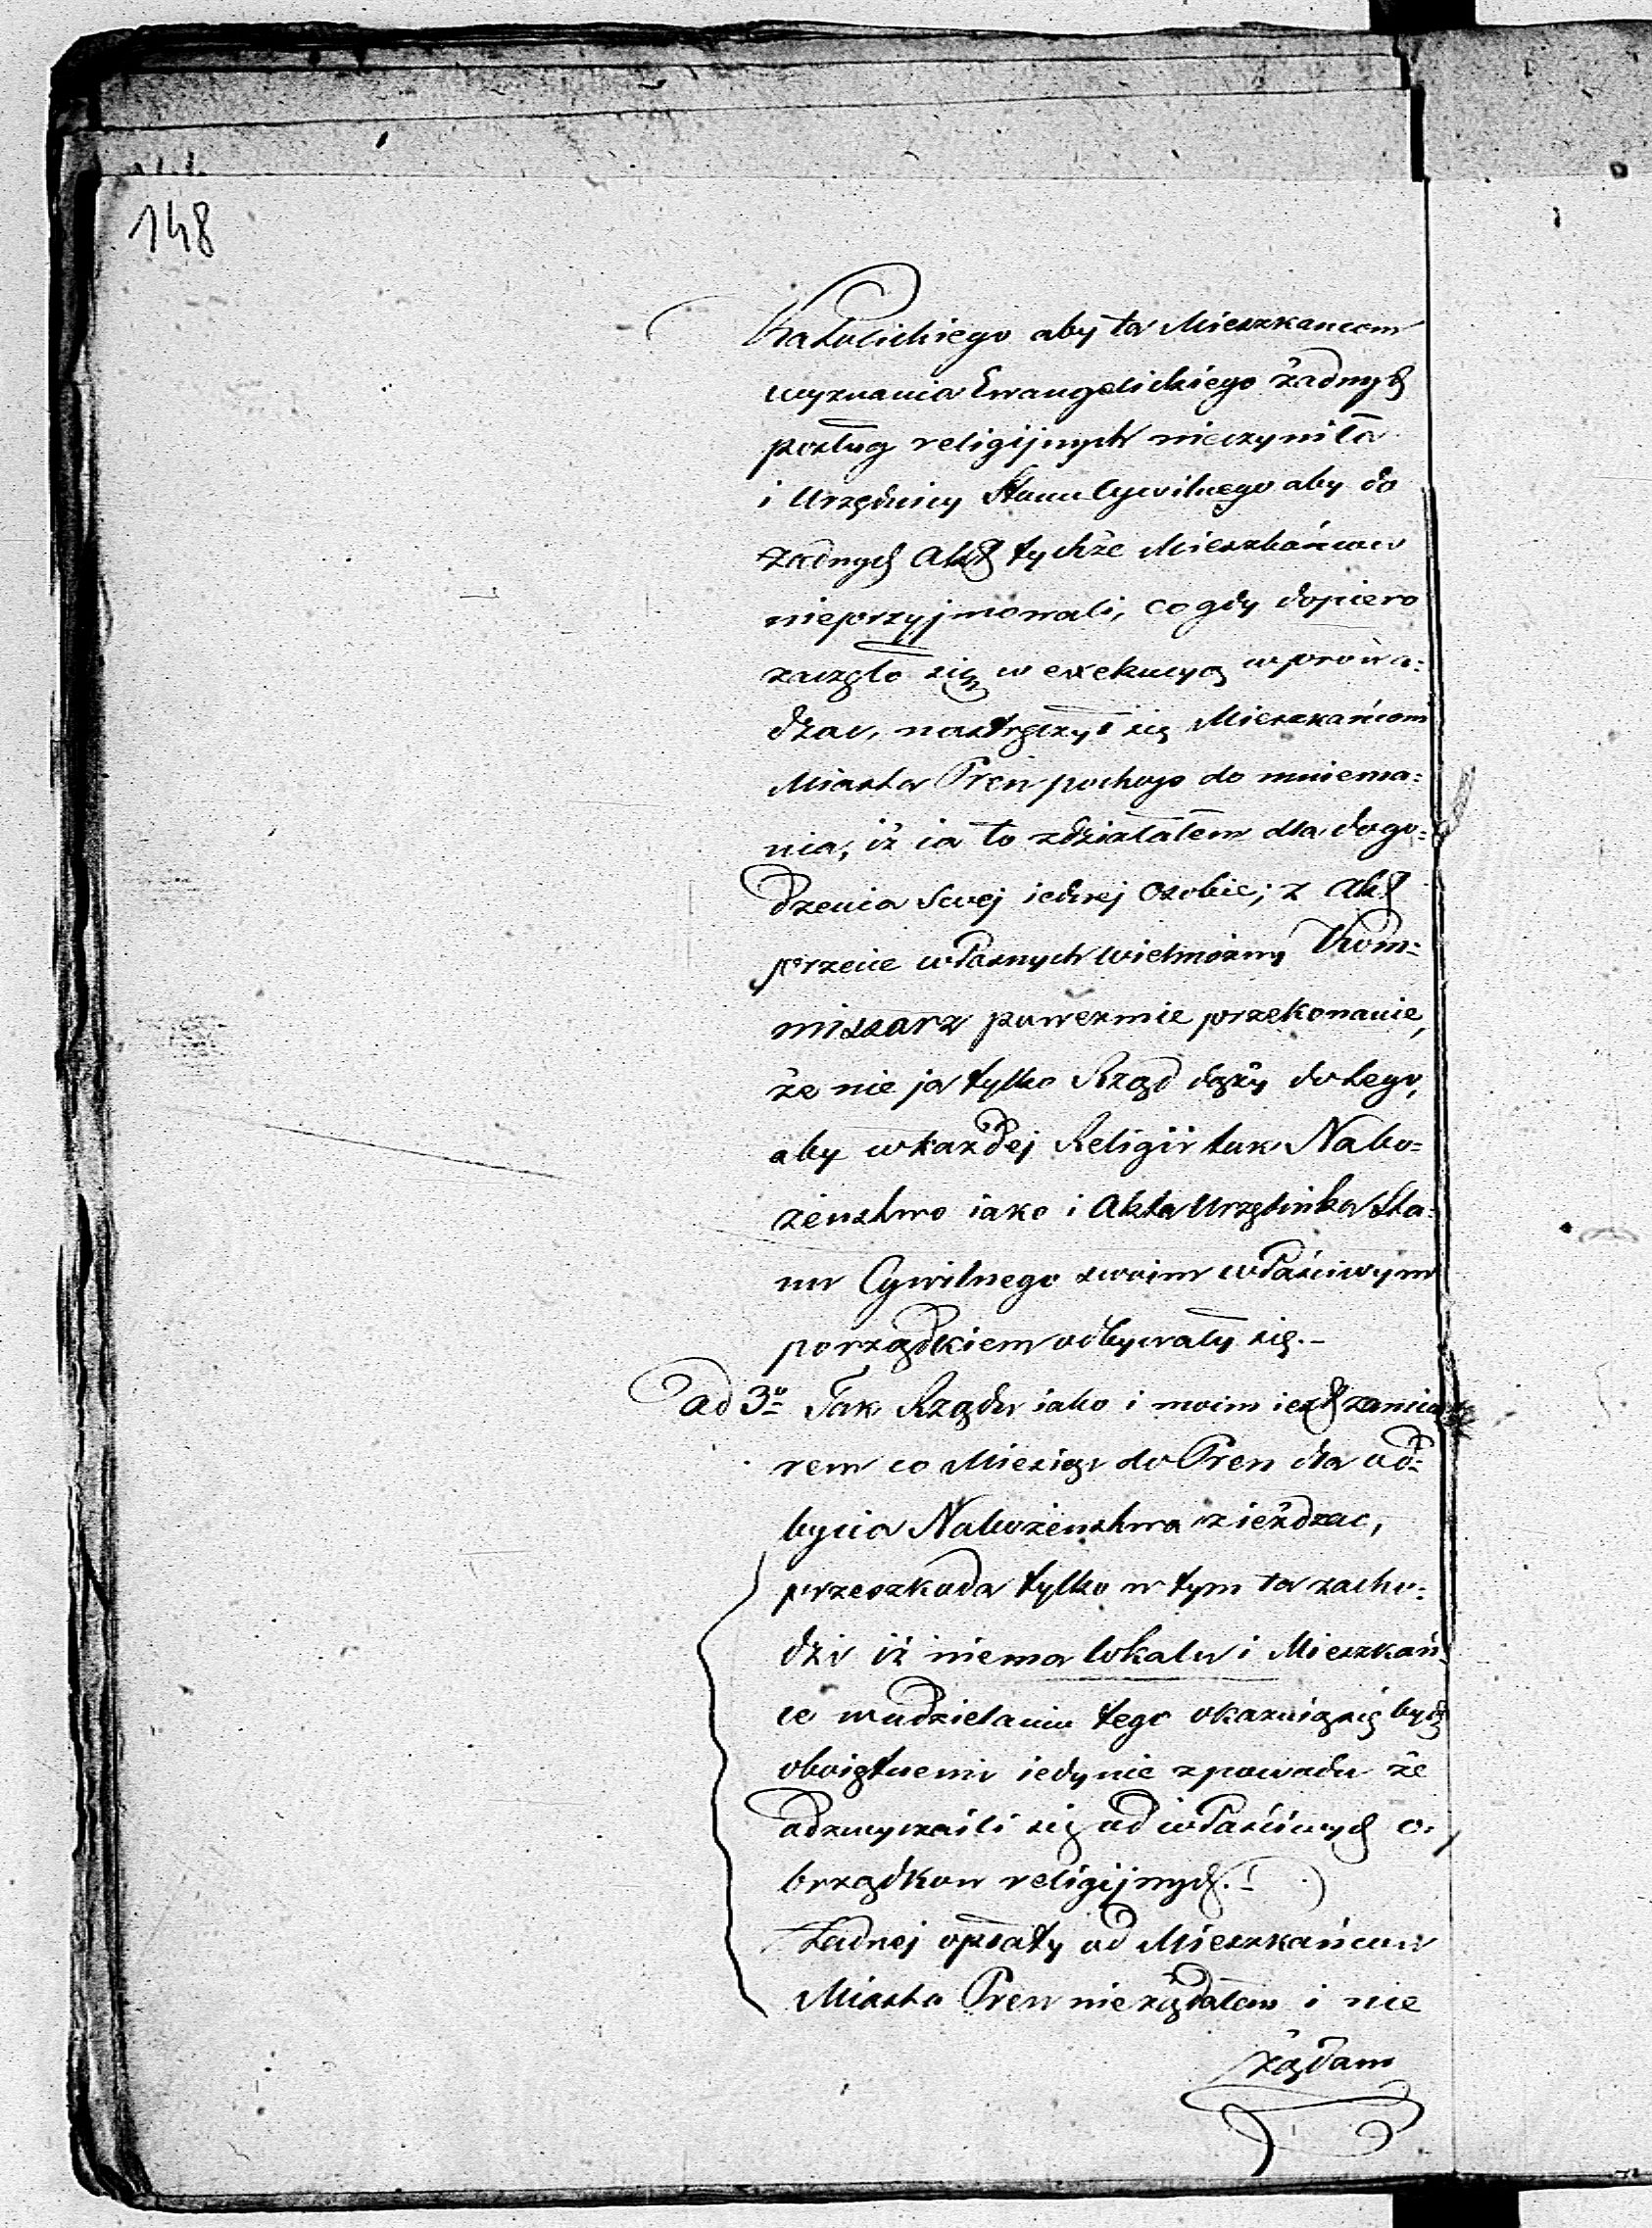 148
Katolickiego aby ta Mieszkancom
wyznania Ewangelickiego żadnych
posług religijnych nieczyniła
i Urzędnicy Stanu Cywilnego aby do
żadnych Akt tychże Mieszkańcow
nieprzyjmowali, co gdy dopiero
zaczęło się w exekucyą wprowa:
dzac, nastręczył się Mieszkańcom
Miasta Pren pochop do mniema:
nia, iż ia to zdziałałem dla dogo:
dzenia swej iednej osobie; z Akt
przecie własnych Wielmożny Kom:
missarz poweźmie przekonanie,
że nie ja tylko Rząd dąży do tego,
aby w każdej Religii tak Nabo:
żenstwo iako i Akta Urzędnika Sta:
nu Cywilnego swoim właściwym
porządkiem odbywały się.-
ad 3o Tak Rządu iako i moim iest zamia
rem co Miesiąc do Pren dla od:
bycia Nabożenstwa zieżdzac,
przeszkoda tylko w tym ta zacho:
dzi iż niema lokalu i Mieszkań:
ce w udzielaniu tego okazuią się bydź
oboiętnemi iedynie z powodu że
odzwyczaili się od właściwych o:
brządkow religijnych.-
Żadnej opłaty od Mieszkańcow
Miasta Pren nieżądałem i nie
żądam